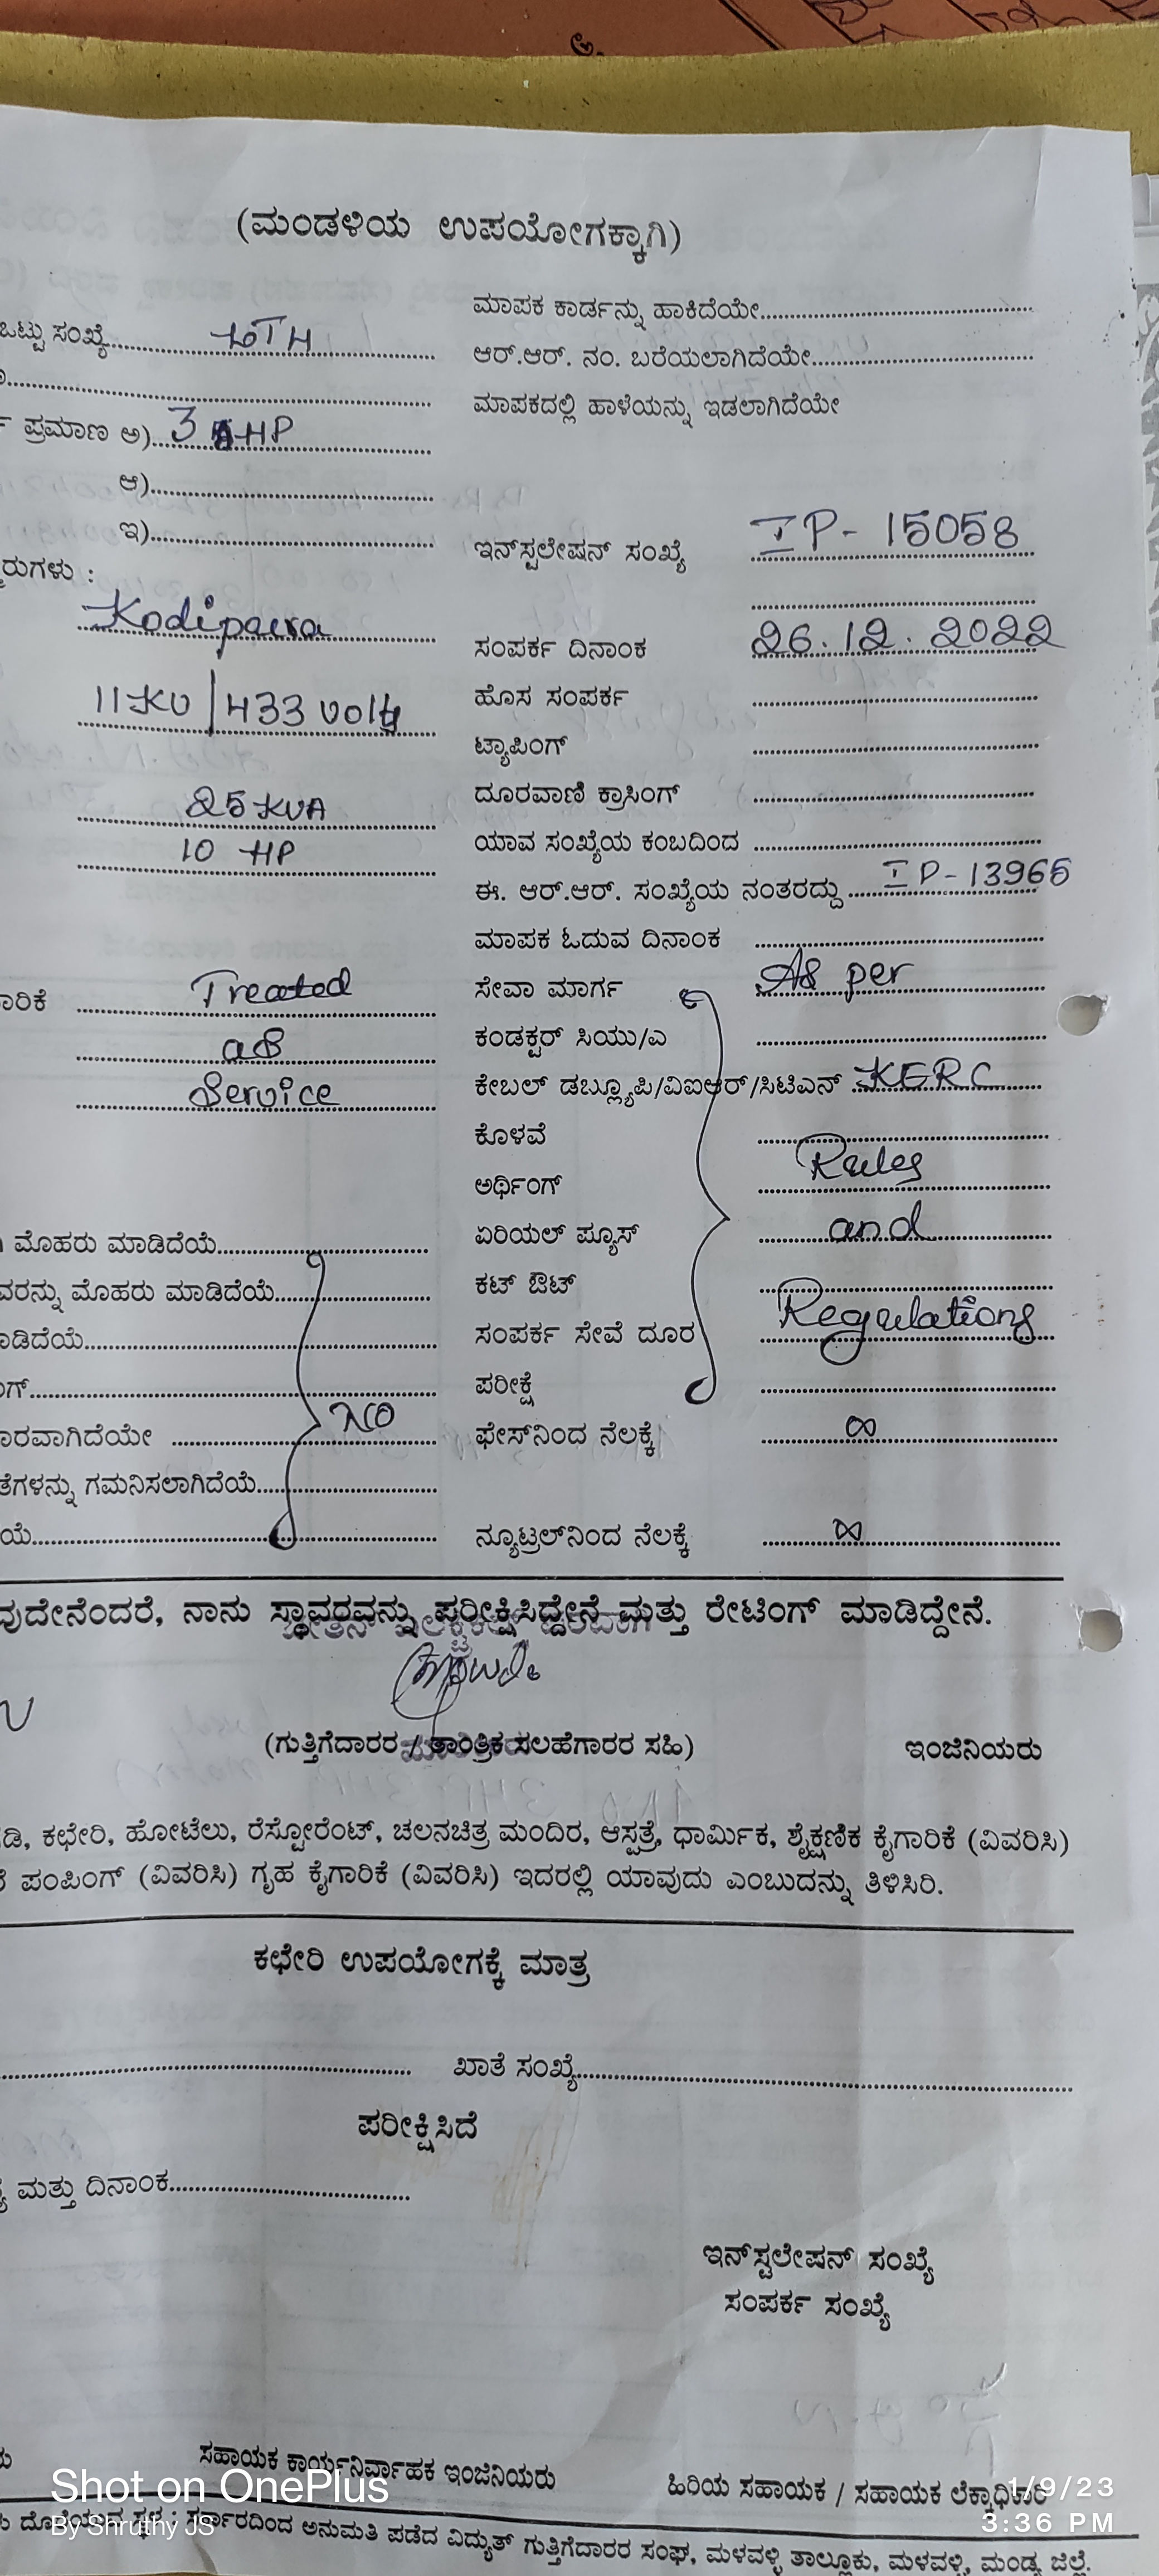 (ಮಂಡಳಿಯ ಉಪಯೋಗಕ್ಕಾಗಿ)
ಮಾಪಕ ಕಾರ್ಡನ್ನು ಹಾಕಿದೆಯೇ
ಒಟ್ಟು ಸಂಖ್ಯೆ
ಆರ್.ಆರ್. ನಂ. ಬರೆಯಲಾಗಿದೆಯೇ
ಮಾಪಕದಲ್ಲಿ ಹಾಳೆಯನ್ನು ಇಡಲಾಗಿದೆಯೇ
ಪ್ರಮಾಣ ಅ) 3 HP
ಆ)
ಇ)
ಇನ್‌ಸ್ಟಲೇಷನ್ ಸಂಖ್ಯೆ IP - 15058
ರುಗಳು :
Kodipura
ಸಂಪರ್ಕ ದಿನಾಂಕ 26.12.2022
11KV/433 volts
ಹೊಸ ಸಂಪರ್ಕ
ಟ್ಯಾಪಿಂಗ್
25 KVA
ದೂರವಾಣಿ ಕ್ರಾಸಿಂಗ್
10 HP
ಯಾವ ಸಂಖ್ಯೆಯ ಕಂಬದಿಂದ
ಈ. ಆರ್.ಆರ್. ಸಂಖ್ಯೆಯ ನಂತರದ್ದು IP - 13965
ಮಾಪಕ ಓದುವ ದಿನಾಂಕ
ಾರಿಕೆ Treated
ಸೇವಾ ಮಾರ್ಗ As per
as
ಕಂಡಕ್ಟರ್ ಸಿಯು/ಎ
Service
ಕೇಬಲ್ ಡಬ್ಲ್ಯೂಪಿ/ವಿಐಆರ್/ಸಿಟಿಎಸ್ KERC
ಕೊಳವೆ
ಅರ್ಥಿಂಗ್ Rules
ಮೊಹರು ಮಾಡಿದೆಯೆ
ಏರಿಯಲ್ ಫ್ಯೂಸ್ and
ವರನ್ನು ಮೊಹರು ಮಾಡಿದೆಯೆ
ಕಟ್ ಔಟ್
ಾಡಿದೆಯೆ
ಸಂಪರ್ಕ ಸೇವೆ ದೂರ Regulations
ಂಗ್
ಪರೀಕ್ಷೆ
ಾರವಾಗಿದೆಯೇ NO
ಫೇಸ್‌ನಿಂದ ನೆಲಕ್ಕೆ ∞
ತೆಗಳನ್ನು ಗಮನಿಸಲಾಗಿದೆಯೆ
ಯೆ
ನ್ಯೂಟ್ರಲ್‌ನಿಂದ ನೆಲಕ್ಕೆ ∞
ವುದೇನೆಂದರೆ, ನಾನು ಸ್ಥಾವರವನ್ನು ಪರೀಕ್ಷಿಸಿದ್ದೇನೆ ಮತ್ತು ರೇಟಿಂಗ್ ಮಾಡಿದ್ದೇನೆ.
(ಗುತ್ತಿಗೆದಾರರ / ತಾಂತ್ರಿಕ ಸಲಹೆಗಾರರ ಸಹಿ) ಇಂಜಿನಿಯರು
ಡಿ, ಕಛೇರಿ, ಹೋಟೆಲು, ರೆಸ್ಟೋರೆಂಟ್, ಚಲನಚಿತ್ರ ಮಂದಿರ, ಆಸ್ಪತ್ರೆ, ಧಾರ್ಮಿಕ, ಶೈಕ್ಷಣಿಕ ಕೈಗಾರಿಕೆ (ವಿವರಿಸಿ)
ಪಂಪಿಂಗ್ (ವಿವರಿಸಿ) ಗೃಹ ಕೈಗಾರಿಕೆ (ವಿವರಿಸಿ) ಇದರಲ್ಲಿ ಯಾವುದು ಎಂಬುದನ್ನು ತಿಳಿಸಿರಿ.
ಕಛೇರಿ ಉಪಯೋಗಕ್ಕೆ ಮಾತ್ರ
ಖಾತೆ ಸಂಖ್ಯೆ
ಪರೀಕ್ಷಿಸಿದೆ
ಮತ್ತು ದಿನಾಂಕ
ಇನ್‌ಸ್ಟಲೇಷನ್ ಸಂಖ್ಯೆ
ಸಂಪರ್ಕ ಸಂಖ್ಯೆ
ಸಹಾಯಕ ಕಾರ್ಯನಿರ್ವಾಹಕ ಇಂಜಿನಿಯರು
ಹಿರಿಯ ಸಹಾಯಕ / ಸಹಾಯಕ ಲೆಕ್ಕಾಧಿಕಾರಿ
Shot on OnePlus
By Shruthy JS
1/9/23
3:36 PM
ದೊರೆಯುವ ಸ್ಥಳ : ಸರ್ಕಾರದಿಂದ ಅನುಮತಿ ಪಡೆದ ವಿದ್ಯುತ್ ಗುತ್ತಿಗೆದಾರರ ಸಂಘ, ಮಳವಳ್ಳಿ ತಾಲ್ಲೂಕು, ಮಳವಳ್ಳಿ, ಮಂಡ್ಯ ಜಿಲ್ಲೆ.